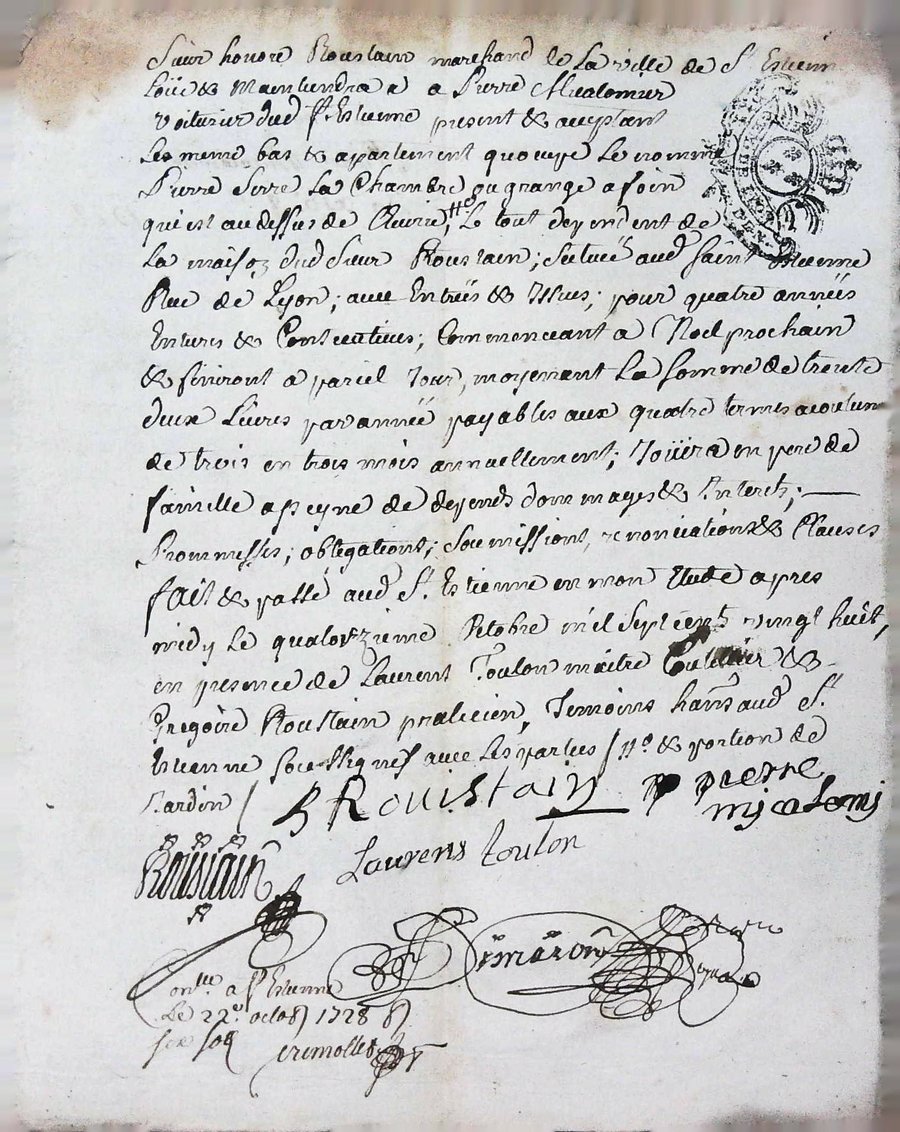 Sieur honoré Roustain marchand de La ville de St Estienne
Loüe & Maintiendra a a Pierre Mialomier
voiturier dud St Estienne present & acceptant
Les meme bas & apartement quocupe Le nommé
Pierre Serre La Chambre ou grange a foin
qui est au dessus de Lecurie, Le tout dependent de
La maison dud Sieur Roustain; Scituée aud Saint Estienne
Rue de Lyon; avec Entrées & Issues; pour quatre années
Entieres & Consecutives; Commencant a Noel prochain
& finiront a pariel Jour, moyenant La somme de trente
deux Livres par année payables aux quatre termes acoutumé
de trois en trois mois annuellement; Joüira en pere de
famille a peyne de depends dommages & Interets;
Prommesses; obligations; soumissions, renonciations & Clauses
fait & passé aud St Estienne en mon Etude apres
midy Le quatorzieme Octobre mil Septcent vingt huit,
en presence de Laurent Toulon maitre &
Gregoire Roustain praticien, Temoins hants aud St
Estienne Soussignes avec Les parties / & portion de
Jardin /
Roustain pierre
mialomi
Roustain
Laurens toulon
a St Estienne
Le 22e octob 1728